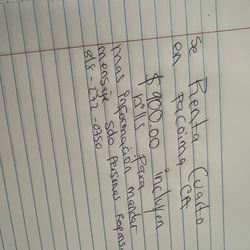 Se Renta Cuarto
en Pacoima CA
$900.00 incluyen
bills para
mas información mandar
mensaje solo personas